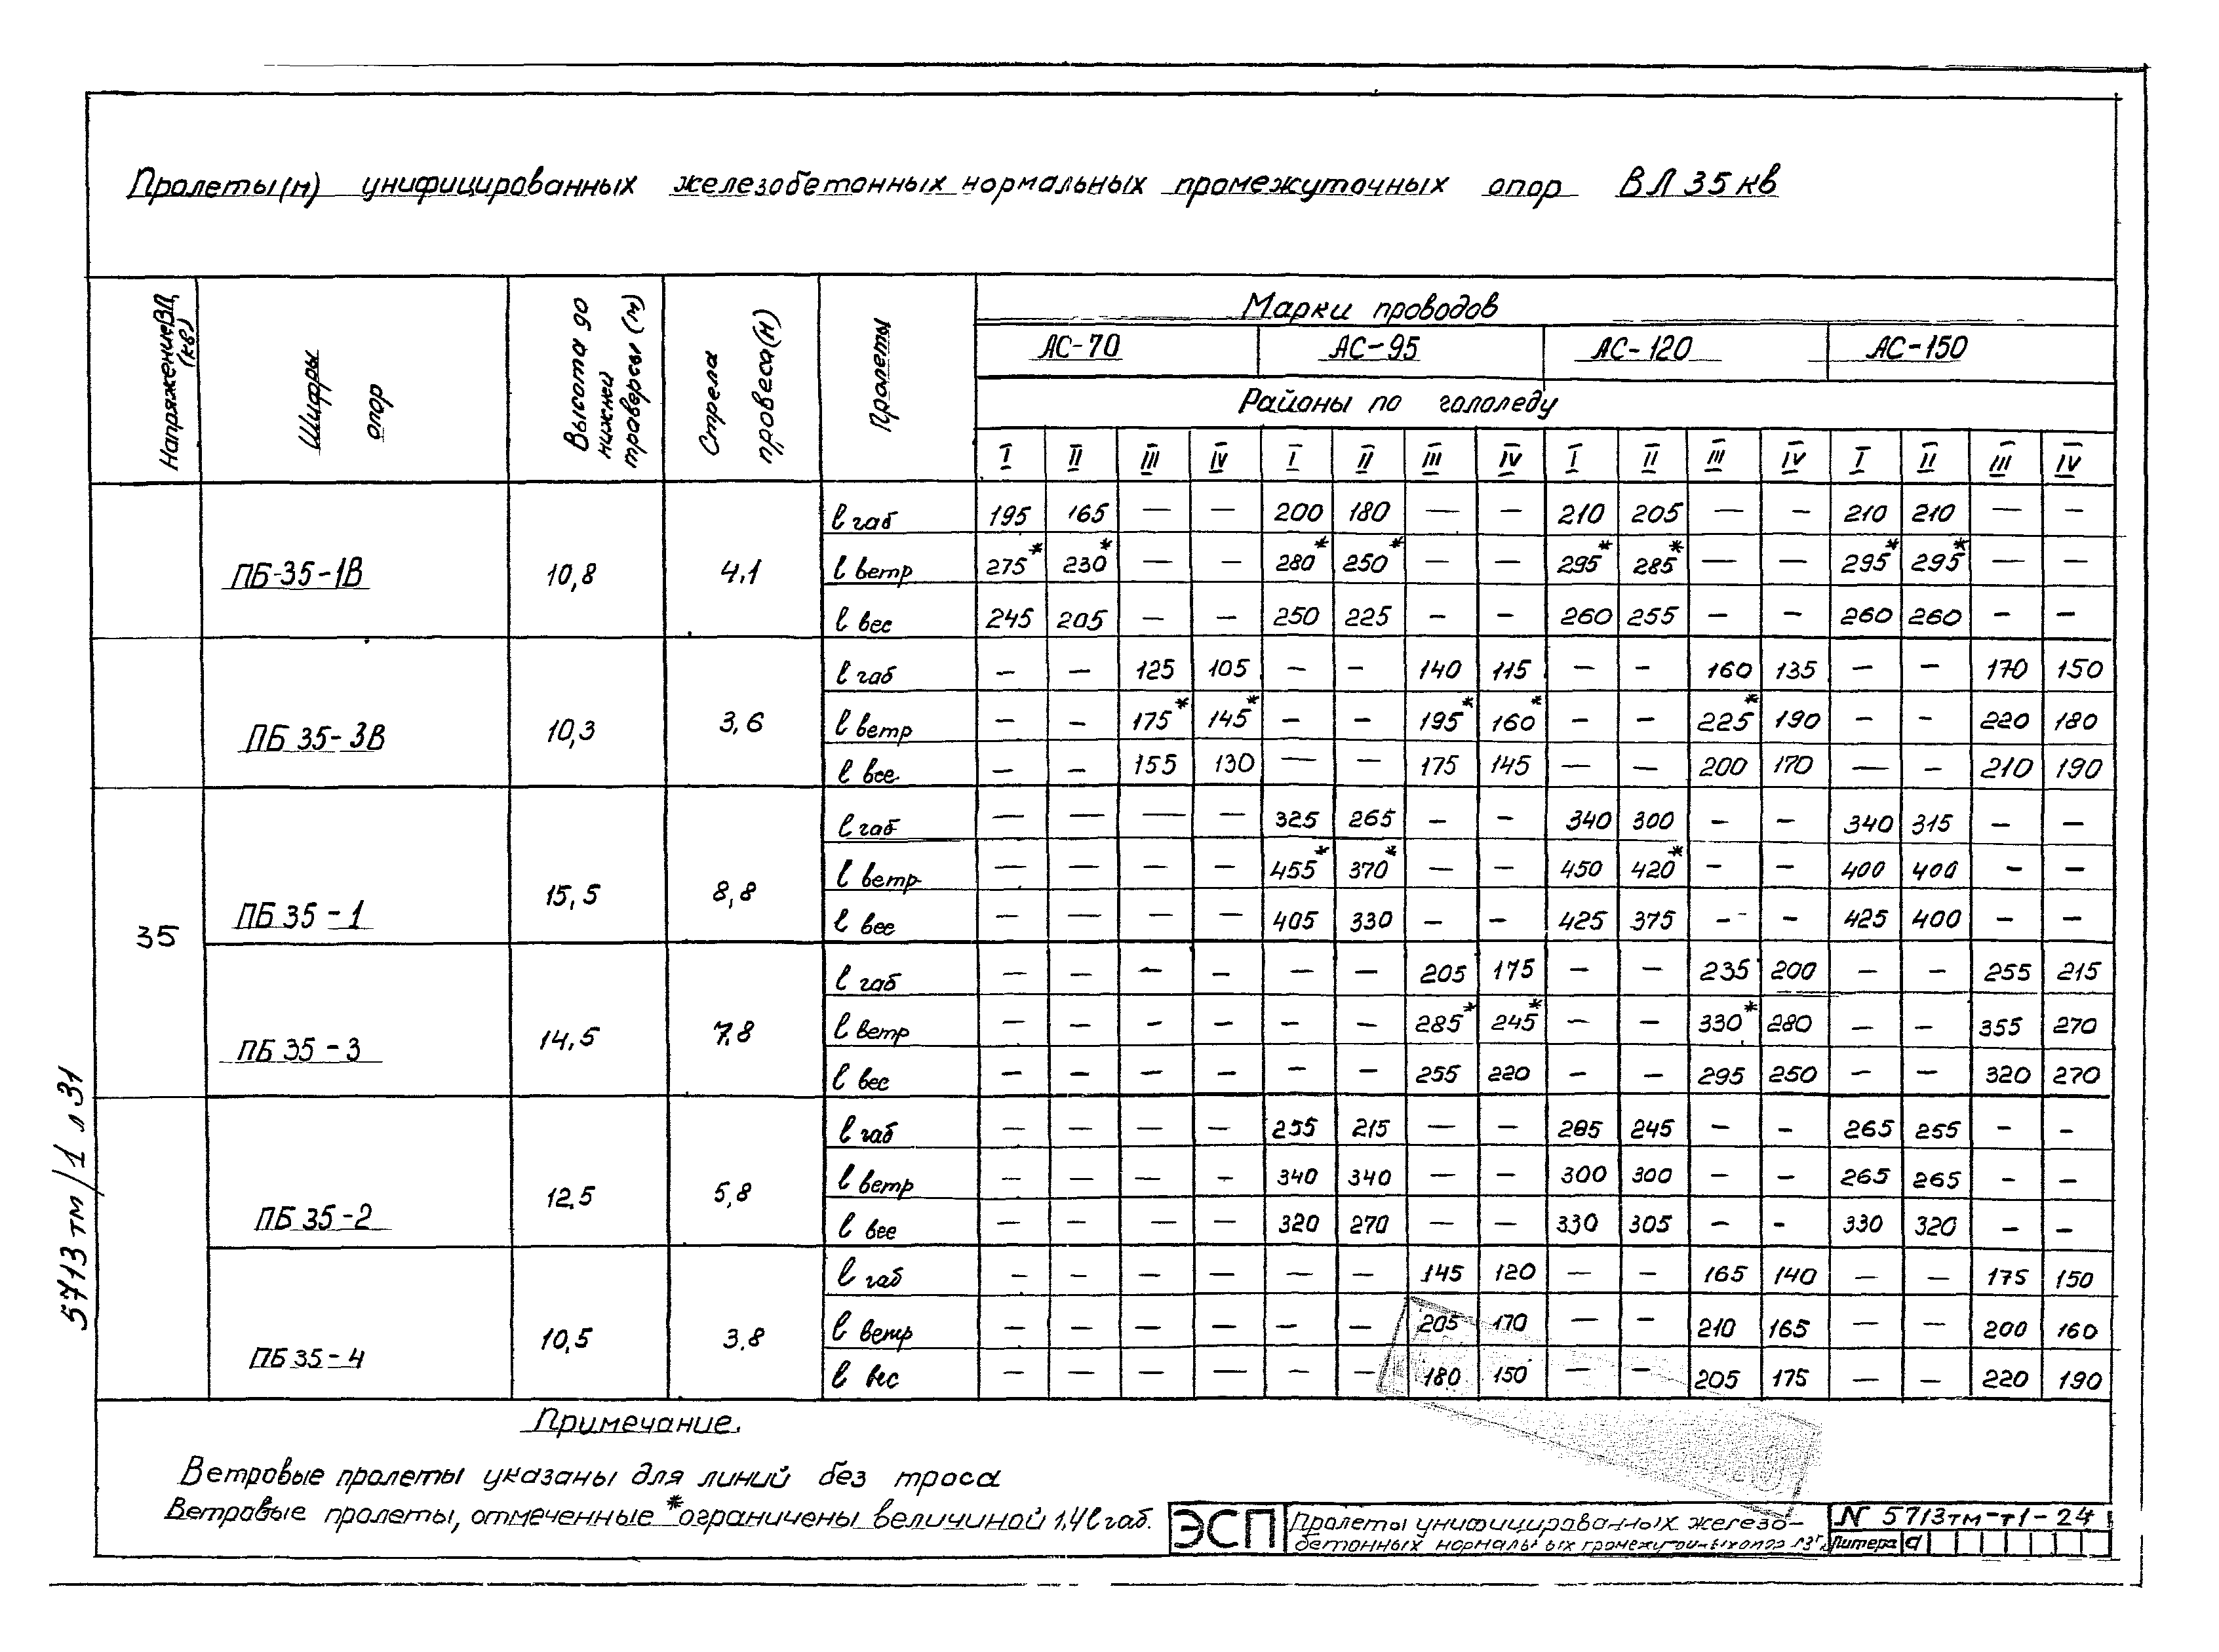 Пролеты(м) унифицированных железобетонных нормальных промежуточных опор ВЛ 35 кв
Напряжение ВЛ (кв)
Шифры опор
Высота до нижней траверсы (м)
Стрела провеса (м)
Пролеты
Марки проводов
АС-70 АС-95 АС-120 АС-150
Районы по гололеду
I II III IV I II III IV I II III IV I II III IV
l габ 195 165 — — 200 180 — — 210 205 — — 210 210 — —
ПБ-35-1В 10,8 4,1 l ветр 275* 230* — — 280* 250* — — 295* 285* — — 295* 295* — —
l вес 245 205 — — 250 225 — — 260 255 — — 260 260 — —
l габ — — 125 105 — — 140 115 — — 160 135 — — 170 150
ПБ 35-3В 10,3 3,6 l ветр — — 175* 145* — — 195* 160* — — 225* 190 — — 220 180
l вес — — 155 130 — — 175 145 — — 200 170 — — 210 190
l габ — — — — 325 265 — — 340 300 — — 340 315 — —
l ветр — — — — 455* 370* — — 450 420* — — 400 400 — —
35 ПБ 35-1 15,5 8,8 l вес — — — — 405 330 — — 425 375 — — 425 400 — —
l габ — — — — — — 205 175 — — 235 200 — — 255 215
ПБ 35-3 14,5 7,8 l ветр — — — — — — 285* 245* — — 330* 280 — — 355 270
l вес — — — — — — 255 220 — — 295 250 — — 320 270
l габ — — — — 255 215 — — 265 245 — — 265 255 — —
l ветр — — — — 340 340 — — 300 300 — — 265 265 — —
ПБ 35-2 12.5 5,8 l вес — — — — 320 270 — — 330 305 — — 330 320 — —
l габ — — — — — — 145 120 — — 165 140 — — 175 150
ПБ 35-4 10,5 3.8 l ветр — — — — — — 205 170 — — 210 165 — — 200 160
l вес — — — — — — 180 150 — — 205 175 — — 220 190
Примечание.
Ветровые пролеты указаны для линий без троса
Ветровые пролеты, отмеченные * ограничены величиной 1,4 l габ.
ЭСП
Пролеты унифицированных железо-
бетонных нормальных промежуточных опор
N 5713тм-т1-24
Литера
5713 тм/1 л 31